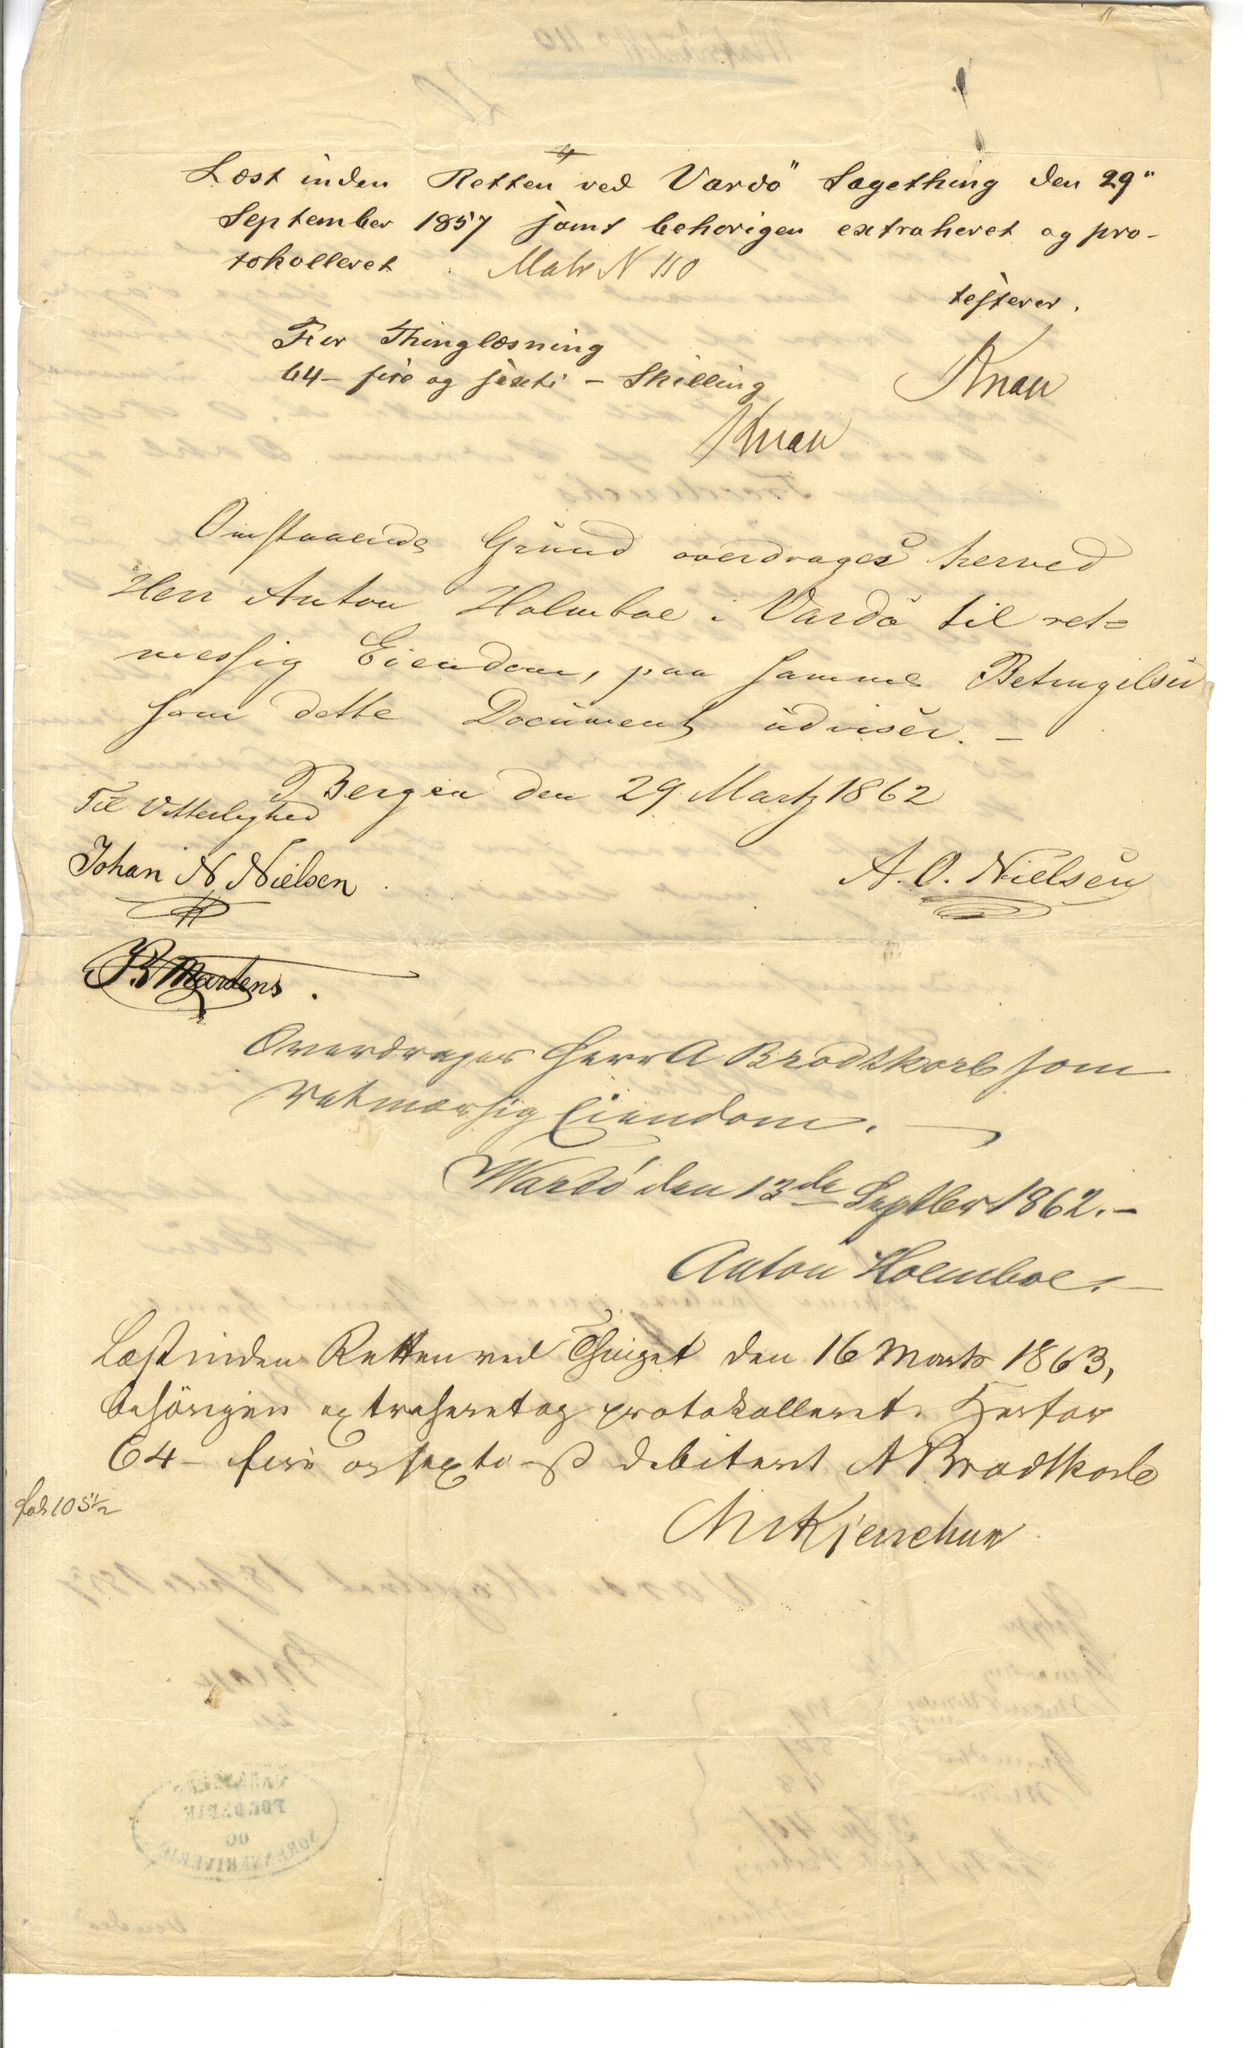 Læst inden Retten ved Vardö Sagething den 29"
September 1857 samt behorigen extraheret og pro-
tokolleret. Matr N 110
testerer.
For Thinglæsning
64 - fire og sexti - Skilling
Knau
Knau
Omstaaende Grund overdrages herved
Herr Anton Holmboe i Vardö til ret=
messig Eiendom, paa samme Betingelser
som dette Document udviser. -
Bergen den 29 Martz 1862
Til Vitterlighed
Johan N. Nielsen
A. O. Nielsen
Martens.
Overdrages Herr A Brodtkorb som
retmæssig Eiendom. -
Wardö den 13de Septber 1862. -
Anton Holmboe. -
Læst inden Retten ved Thinget den 16 Marts 1863,
behörigen extraheret og protokolleret. Herfor
64 - fire og sexti - ß debiteret A Brodtkorb